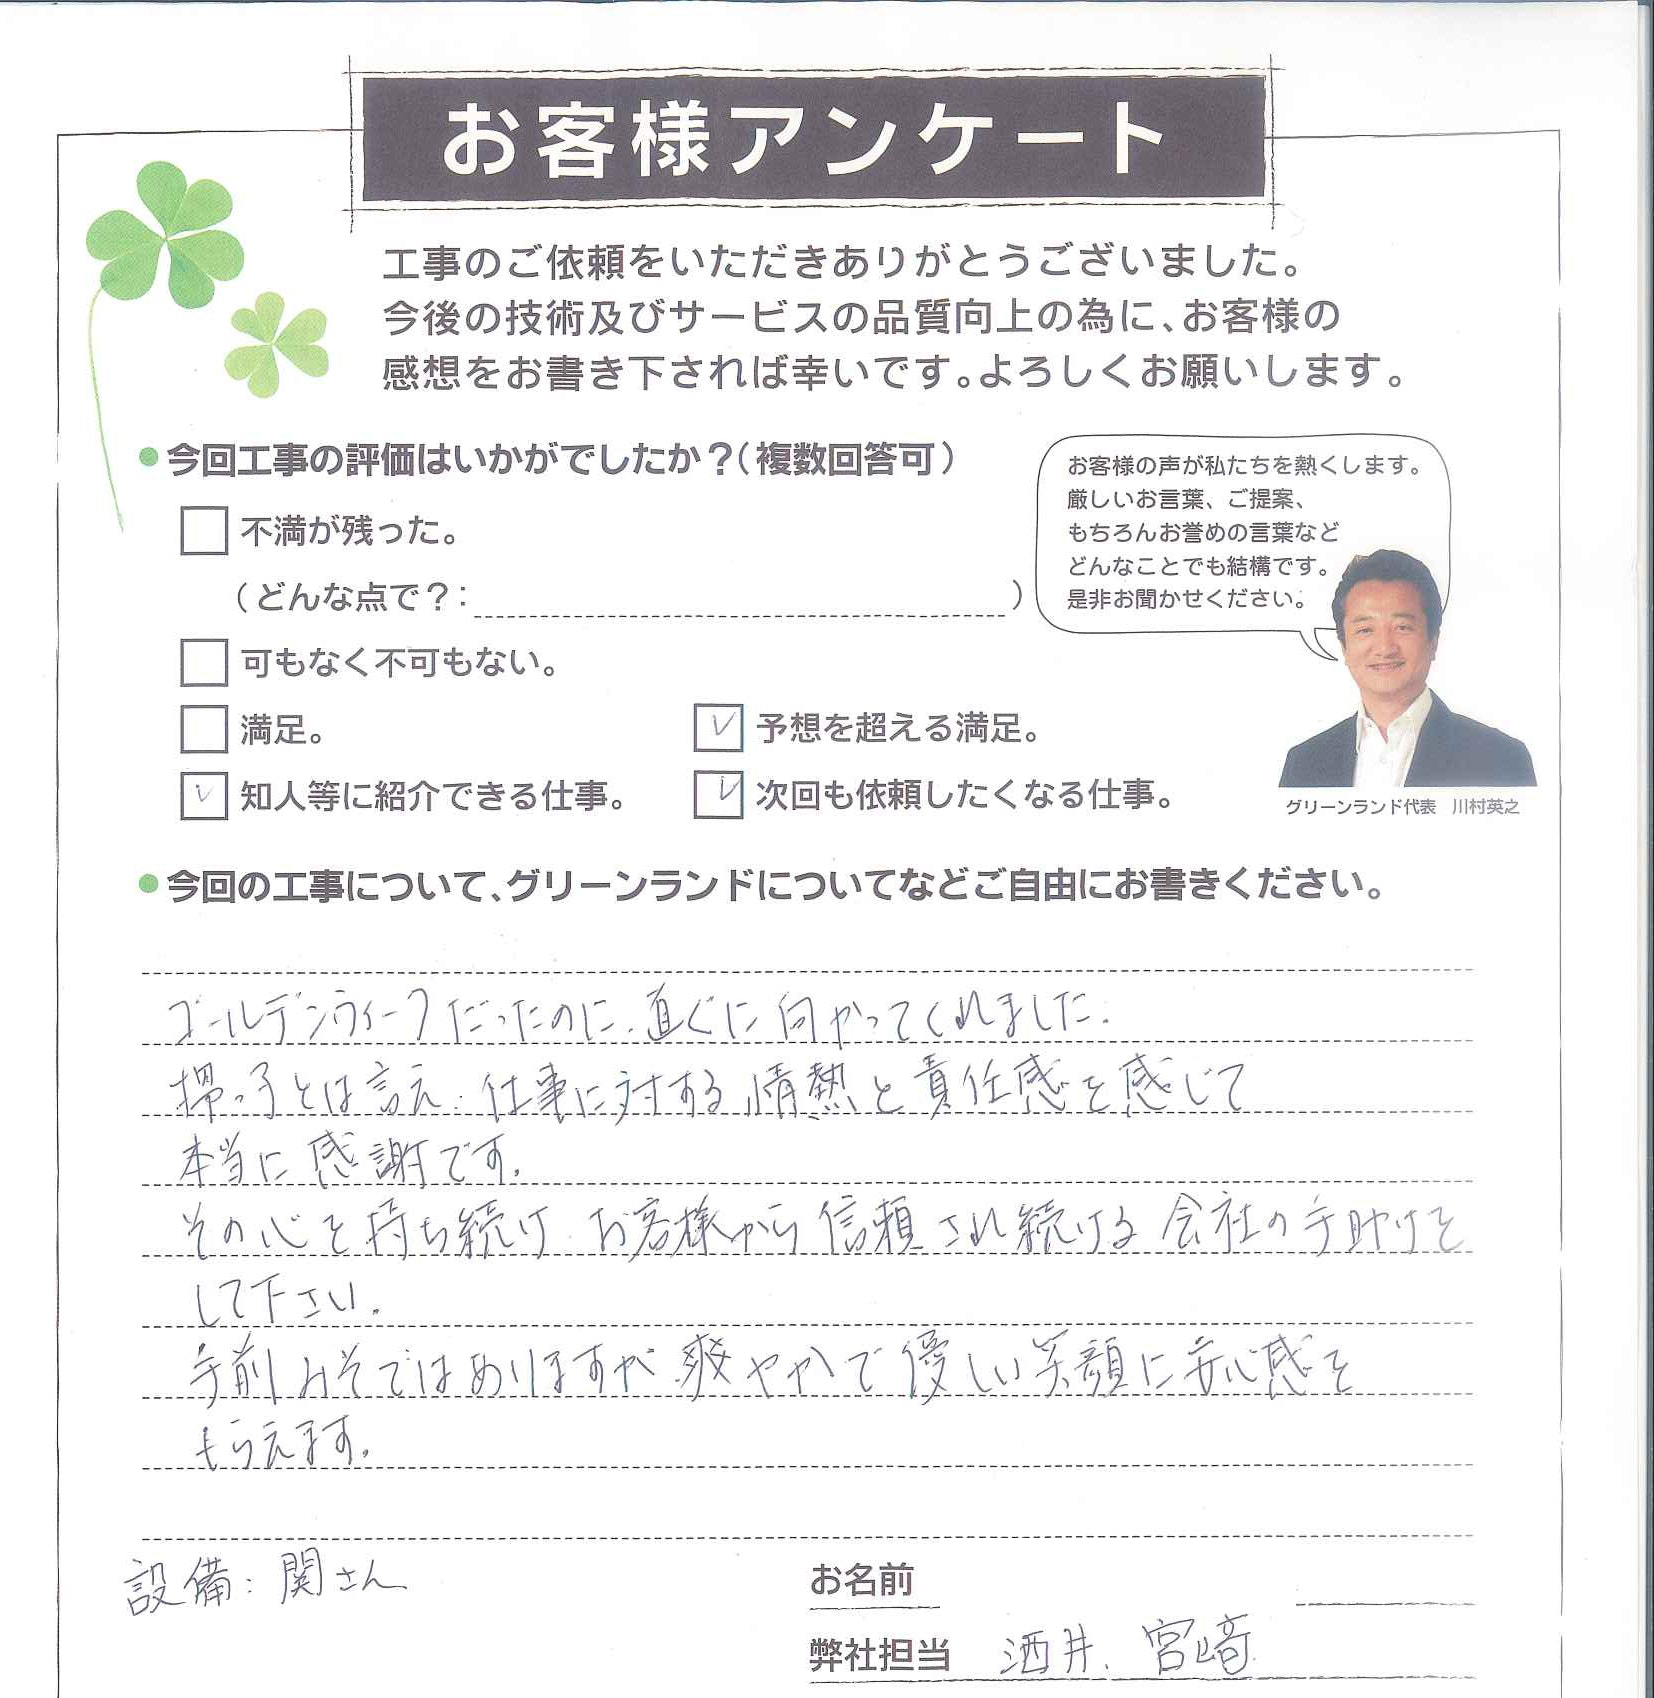 お客様アンケート
工事のご依頼をいただきありがとうございました。
今後の技術及びサービスの品質向上の為に、お客様の
感想をお書き下されば幸いです。よろしくお願いします。
今回工事の評価はいかがでしたか？（複数回答可）
不満が残った。
（どんな点で？： ）
可もなく不可もない。
満足。
予想を超える満足。
知人等に紹介できる仕事。
次回も依頼したくなる仕事。
お客様の声が私たちを熱くします。
厳しいお言葉、ご提案、
もちろんお誉めの言葉など
どんなことでも結構です。
是非お聞かせください。
グリーンランド代表 川村英之
今回の工事について、グリーンランドについてなどご自由にお書きください。
ゴールデンウィークだったのに、直ぐに向かってくれました。
っ子とは言え、仕事に対する情熱と責任感を感じて
本当に感謝です。
その心を持ち続け、お客様から信頼され続ける会社の手助けを
して下さい。
手前みそではありますが、爽やかで優しい笑顔に安心感を
もらえます。
設備：関さん
お名前
弊社担当 酒井、宮﨑